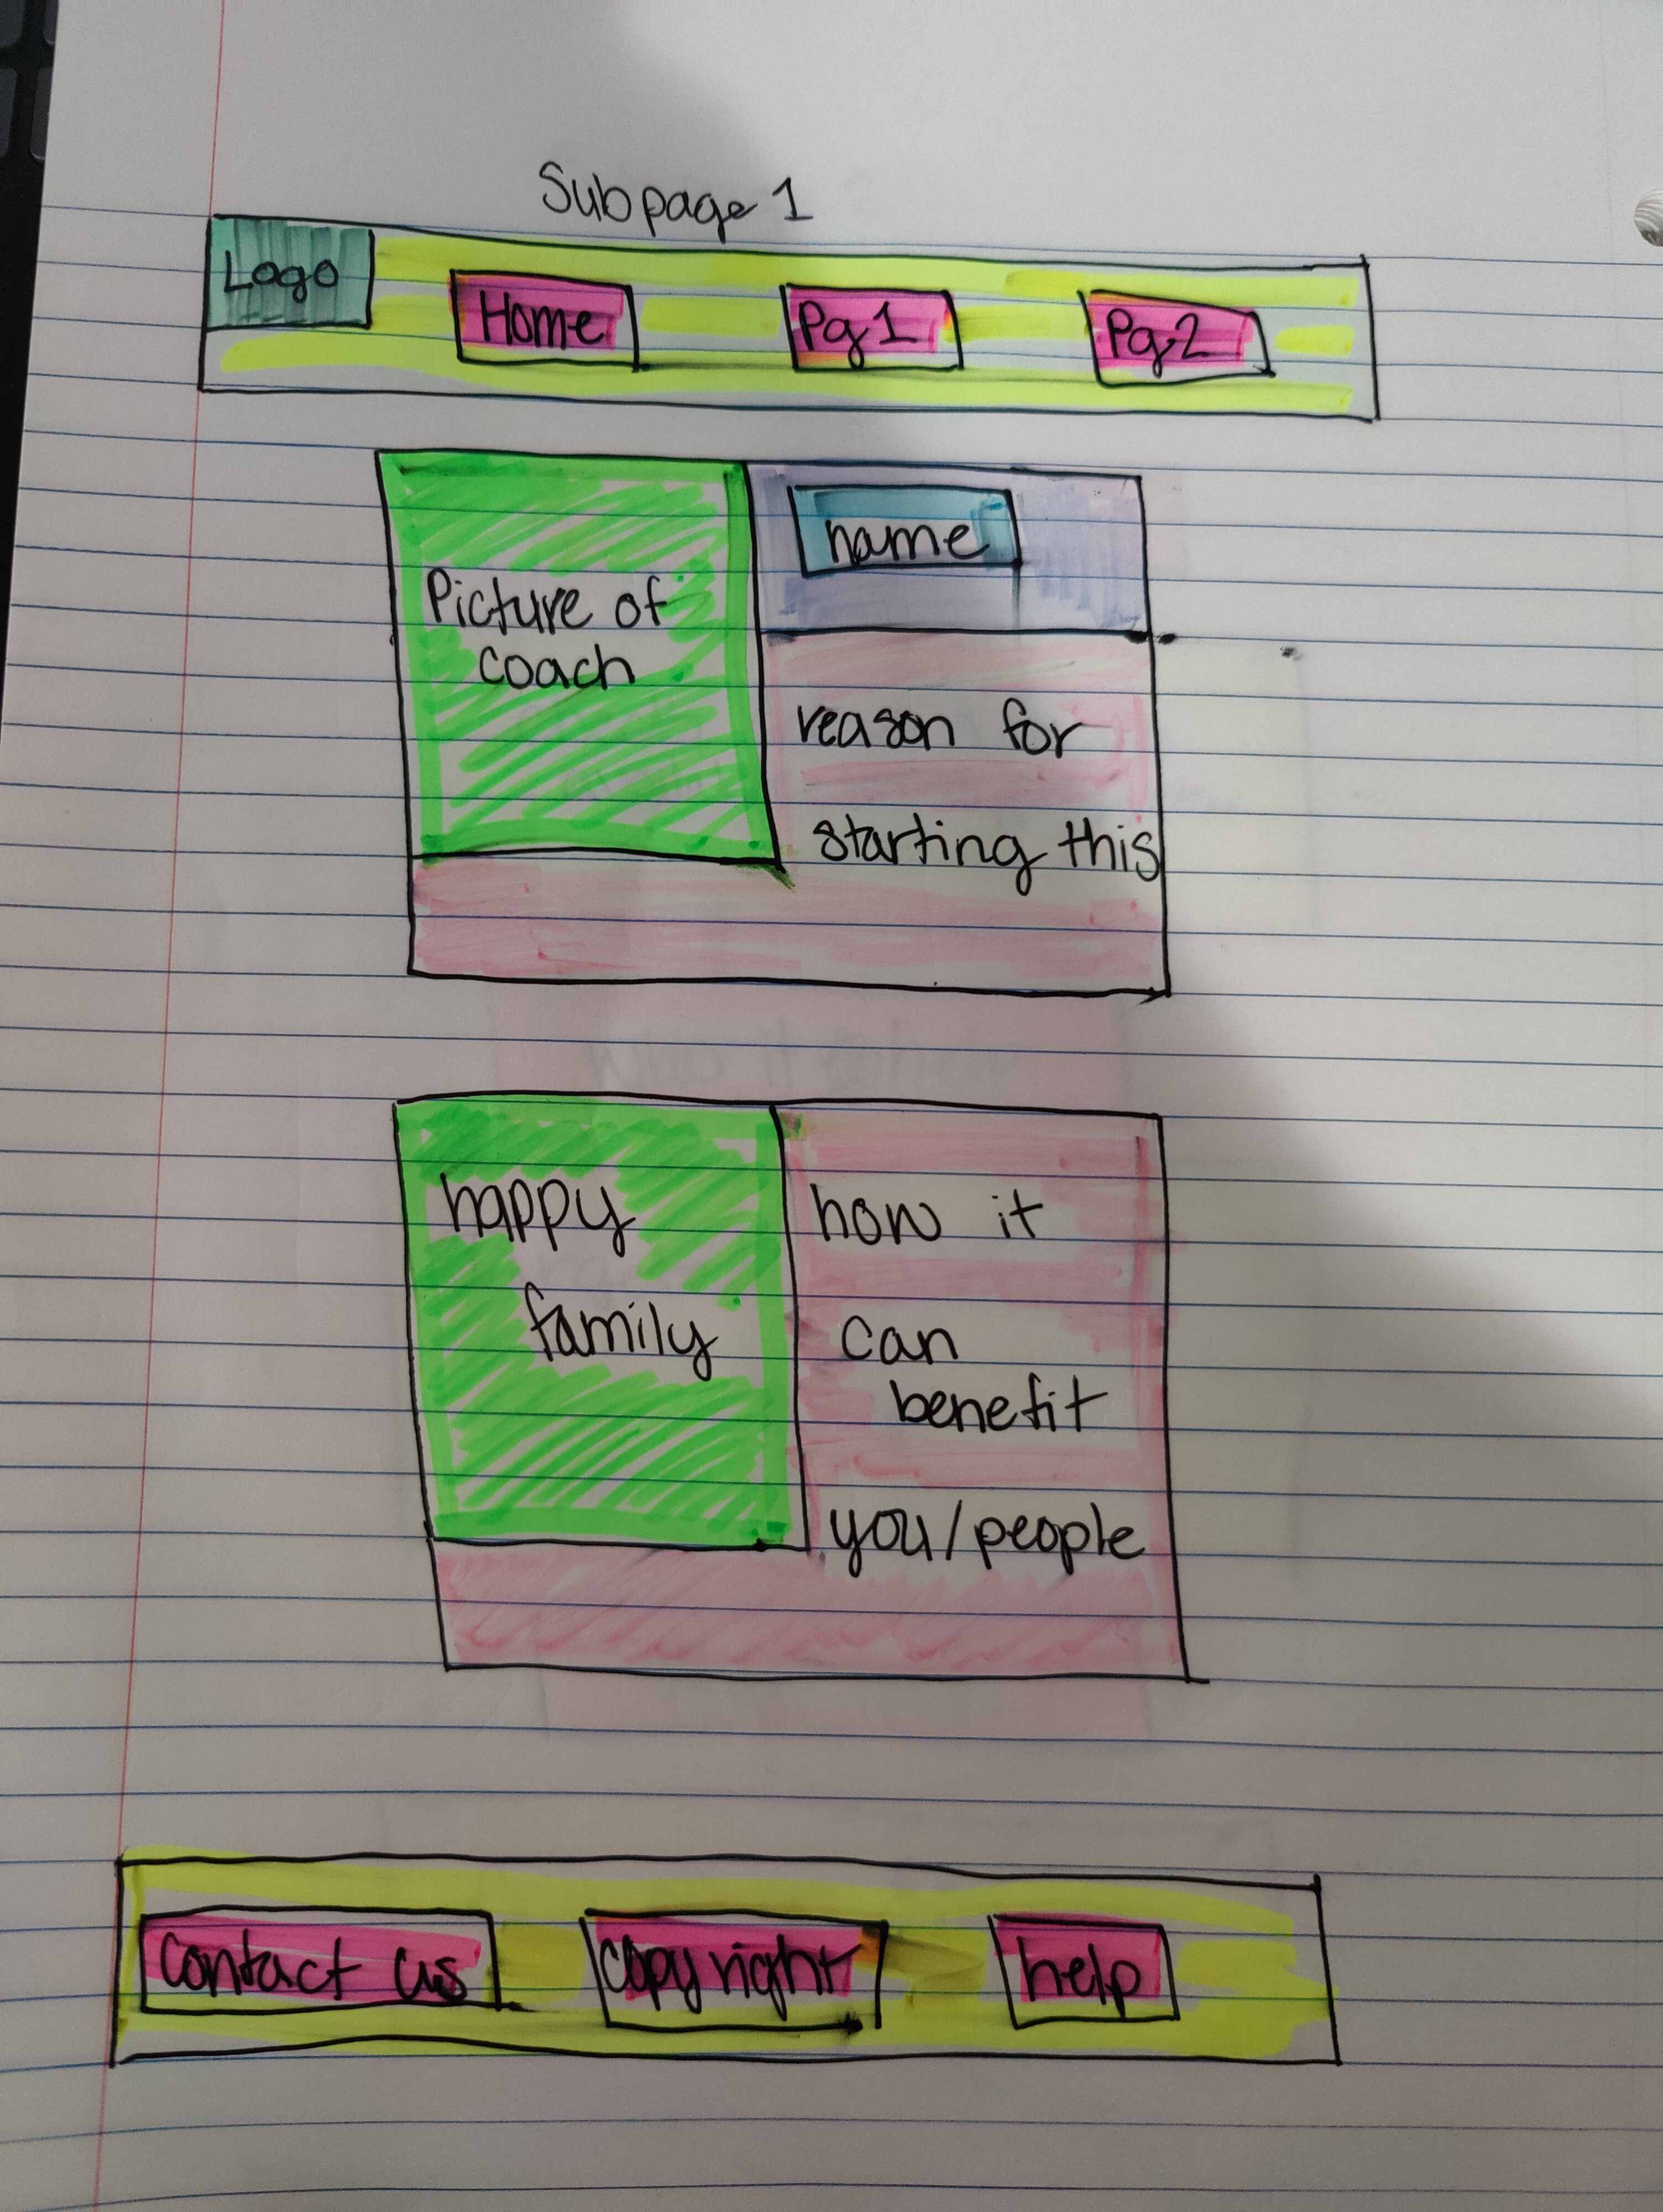 Subpage 1
Logo
Home
Pg 1
Pg 2
Picture of
coach
name
reason for
starting this
happy
family
how it
can
benefit
you/people
contact us
copyright
help